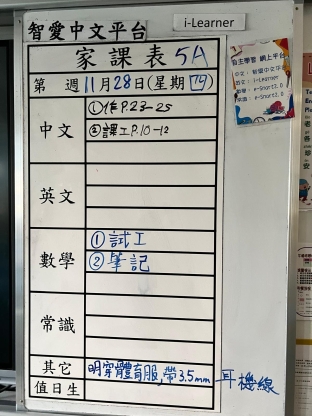 智愛中文平台
i-Learner
家課表 5A
第 週 11月28日(星期四)
中文
①作P.23-25
②課工P.10-12
英文
數學
①試工
②筆記
常識
其它 明穿體育服,帶3.5mm耳機線
值日生
自主學習 網上平台
中文: 智愛中文平台
英文: i-Learner
數學: e-Smart2.0
常識: e-Smart2.0